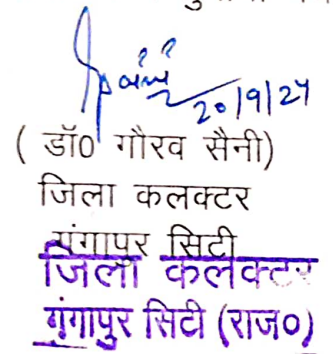 Saini
20/9/24
( डॉ0 गौरव सैनी)
जिला कलक्टर
गंगापुर सिटी
जिला कलक्टर
गंगापुर सिटी (राज०)